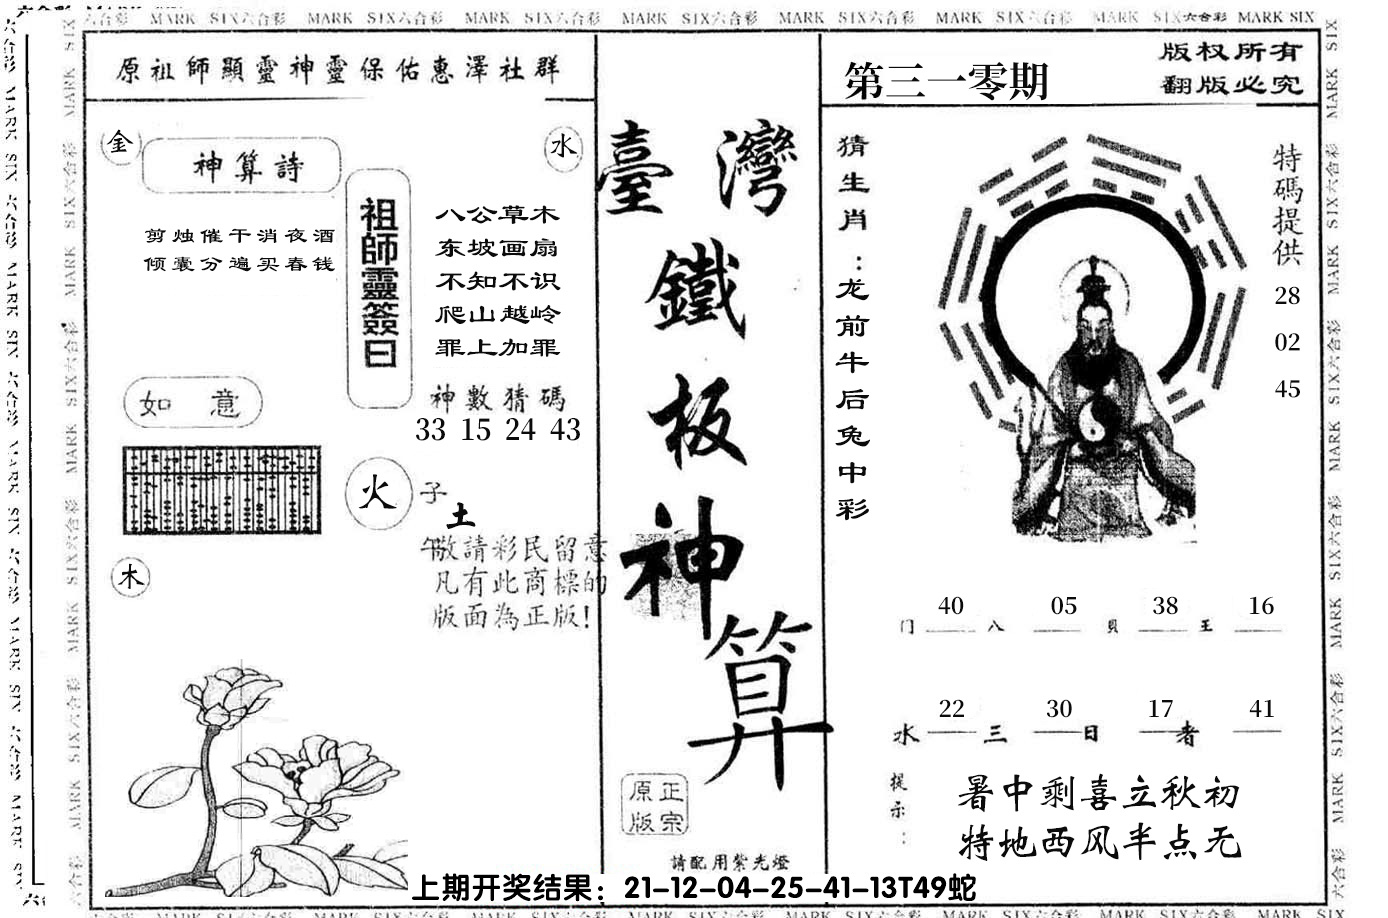 MARK SIX六合彩 MARK SIX六合彩 MARK SIX六合彩 MARK SIX六合彩 MARK SIX六合彩 MARK SIX六合彩 MARK SIX六合彩 MARK SIX
原祖師顯靈神靈保佑惠澤社群
金
水
神算詩
剪烛催干消夜酒
倾囊分遍买春钱
祖師靈簽曰
八公草木
东坡画扇
不知不识
爬山越岭
罪上加罪
神數猜碼
33 15 24 43
如 意
火
子
土
午
木
敬請彩民留意
凡有此商標的
版面為正版!
臺灣
鐵
板
神
算
正宗
原版
請配用紫光燈
第三一零期
版权所有
翻版必究
猜生肖:龙前牛后兔中彩
特碼提供
28
02
45
40 05 38 16
门 八 貝 王
22 30 17 41
水 三 日 者
提示:
暑中剩喜立秋初
特地西风半点无
上期开奖结果：21-12-04-25-41-13T49蛇